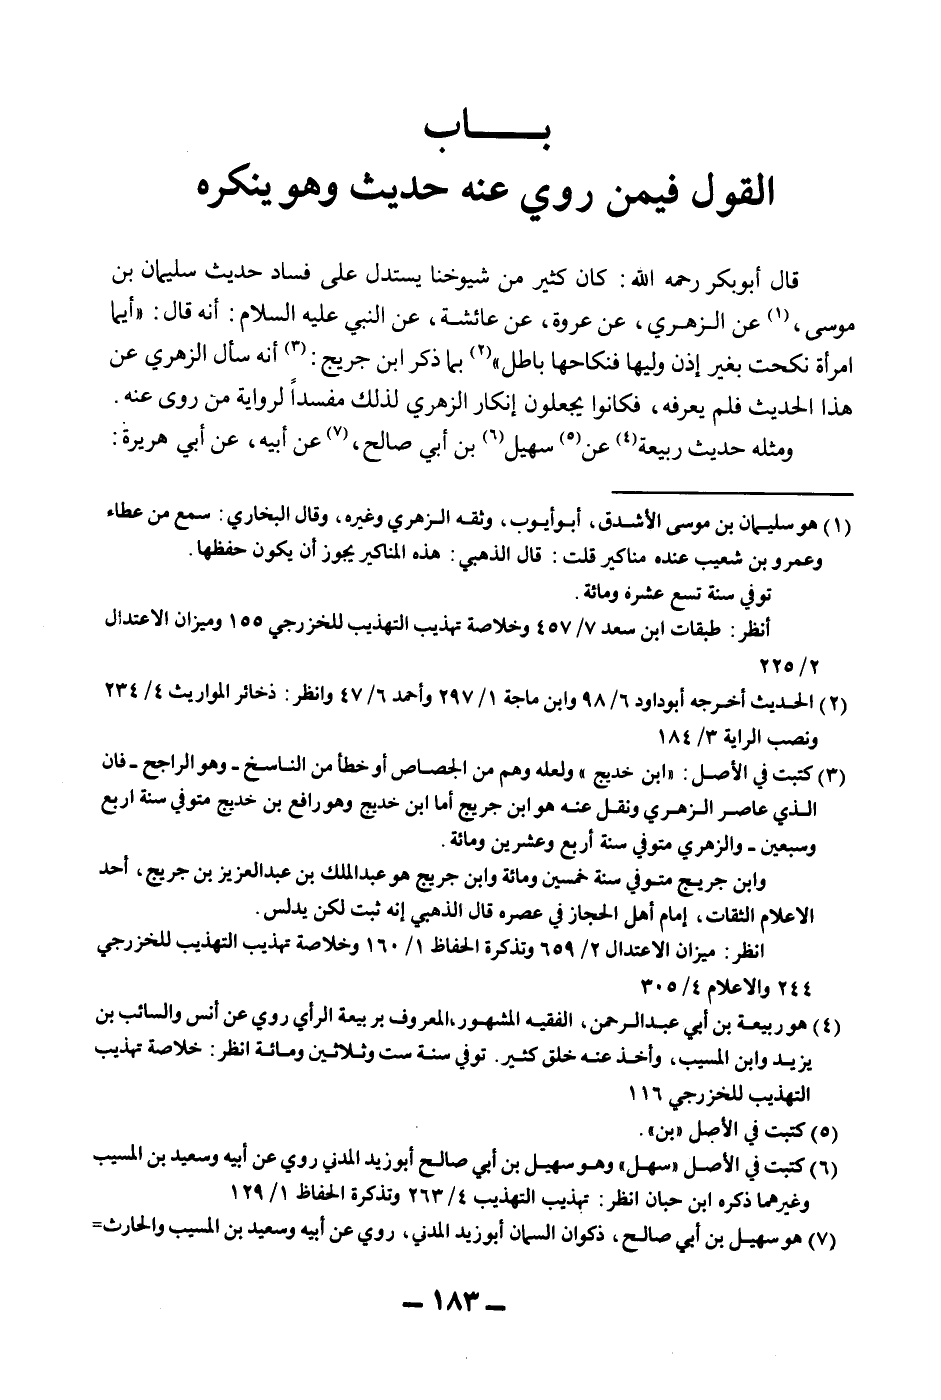 بـــــاب
القول فيمن روي عنه حديث وهو ينكره
قال أبوبكر رحمه الله : كان كثير من شيوخنا يستدل على فساد حديث سليمان بن
موسى ،(١) عن الـزهـري ، عن عروة، عن عائشـة، عن النبي عليه السلام : أنه قال : «أيما
امرأة نكحت بغير إذن وليها فنكاحها باطل»(٢) بما ذكر ابن جريج :(٣) أنه سأل الزهري عن
هذا الحديث فلم يعرفه، فكانوا يجعلون إنكار الزهري لذلك مفسداً لرواية من روى عنه .
ومثله حديث ربيعة(٤) عن(٥) سهيل(٦) بن أبي صالح،(٧) عن أبيه، عن أبي هريرة :
(١) هو سليـمان بن موسى الأشـدق، أبـوأيـوب، وثقـه الـزهري وغيره، وقال البخاري : سمع من عطاء
وعمرو بن شعيب عنده مناكير قلت : قال الذهبي : هذه المناكير يجوز أن يكون حفظها .
توفي سنة تسع عشرة ومائة .
أنظر : طبقات ابن سعد ٧/ ٤٥٧ وخلاصة تهذيب التهذيب للخزرجي ١٥٥ وميزان الاعتدال
٢/ ٢٢٥
(٢) الحـديث أخـرجه أبوداود ٦/ ٩٨ وابن ماجة ١/ ٢٩٧ وأحمد ٦/ ٤٧ وانظر : ذخائر المواريث ٤/ ٢٣٤
ونصب الراية ٣/ ١٨٤
(٣) كتبت في الأصـل : «ابن خديج » ولعله وهم من الجصاص أو خطأ من النـاسـخ ـ وهو الراجح ـ فان
الـذي عاصـر الـزهـري ونقـل عنـه هو ابن جريج أما ابن خديج وهو رافع بن خديج متوفي سنة اربع
وسبعين ـ والزهري متوفي سنة أربع وعشرين ومائة .
وابن جريـج متـوفي سنة خمسين ومائة وابن جريج هو عبدالملك بن عبدالعزيز بن جريج، أحد
الاعلام الثقات، إمام أهل الحجاز في عصره قال الذهبي إنه ثبت لكن يدلس .
انظر : ميزان الاعتدال ٢/ ٦٥٩ وتذكرة الحفاظ ١/ ١٦٠ وخلاصة تهذيب التهذيب للخزرجي
٢٤٤ والاعلام ٤/ ٣٠٥
(٤) هو ربيعـة بن أبي عبدالـرحمن، الفقيه المشهور،المعروف بربيعة الرأي روي عن أنس والسائب بن
يزيـد وابن المسيب، وأخـذ عنـه خلق كثـير. توفي سنـة ست وثلاثـين ومائـة انظر : خلاصة تهذيب
التهذيب للخزرجي ١١٦
(٥) كتبت في الأصل «بن» .
(٦) كتبت في الأصـل «سهل» وهـو سهيـل بن أبي صالـح أبوزيد المدني روي عن أبيه وسعيد بن المسيب
وغيرهما ذكره ابن حبان انظر : تهذيب التهذيب ٤/ ٢٦٣ وتذكرة الحفاظ ١/ ١٢٩
(٧) هو سهيـل بن أبي صالـح ، ذكوان السمان أبوزيد المدني، روي عن أبيه وسعيد بن المسيب والحارث=
ـ ١٨٣ ـ